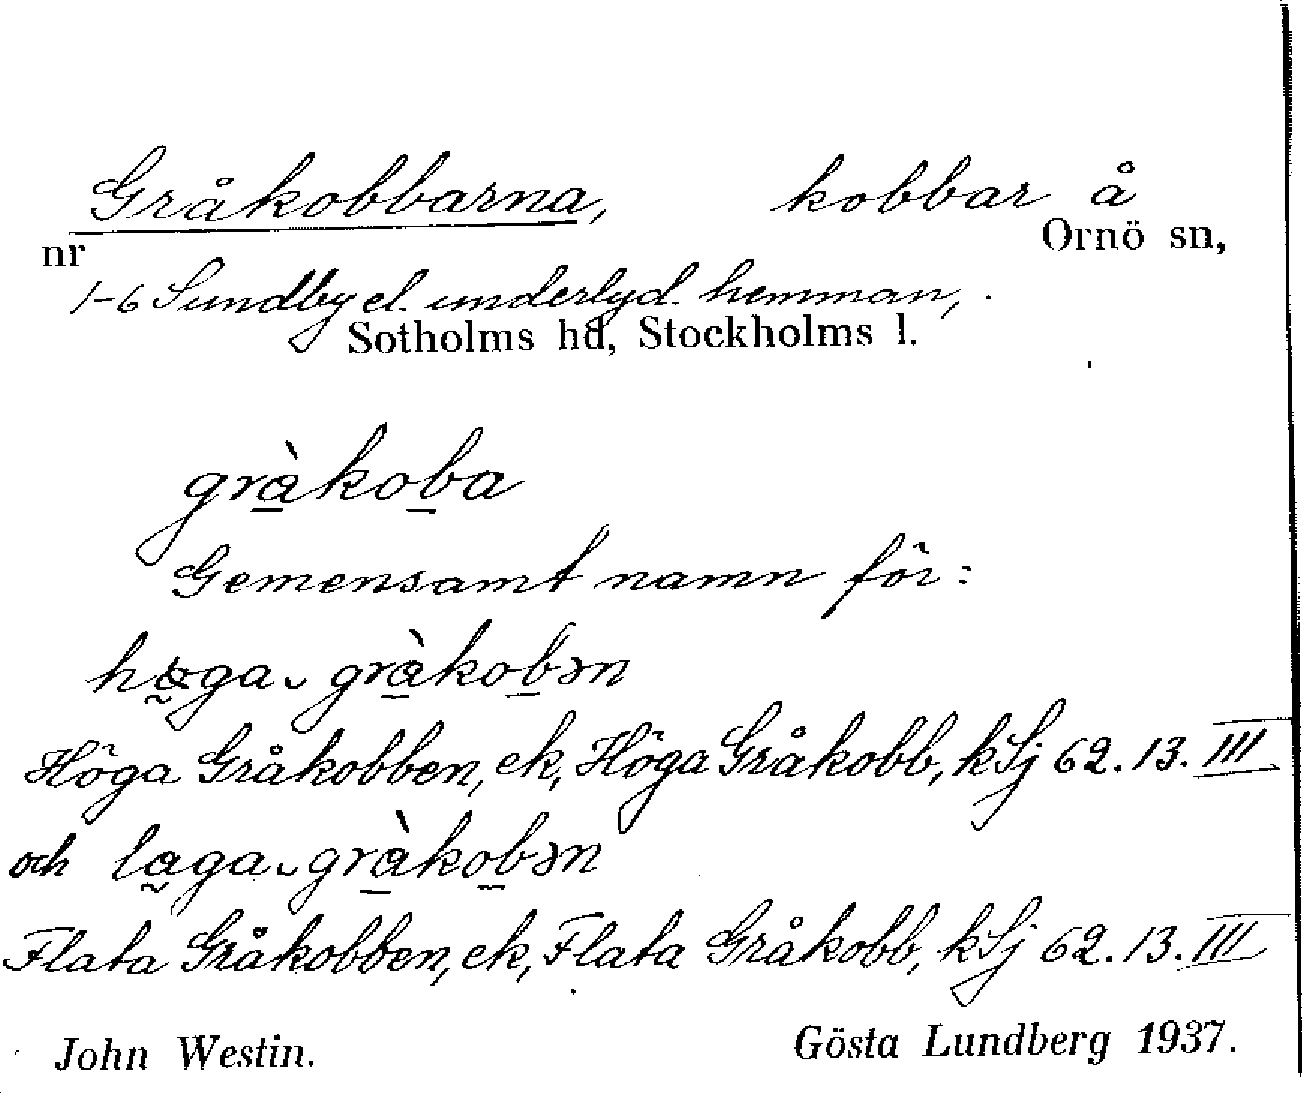 Gråkobbarna, kobbar å
nr Ornö sn,
1-6 Sundby el. underlyd. hemman,
Sotholms hd, Stockholms l.
gràkoba
Gemensamt namn för:
høga gràkobən
Höga Gråkobben, ek, Höga Gråkobb, kSj 62. 13. III
och laga gràkobən
Flata Gråkobben, ek, Flata Gråkobb, kSj 62. 13. III
John Westin. Gösta Lundberg 1937.